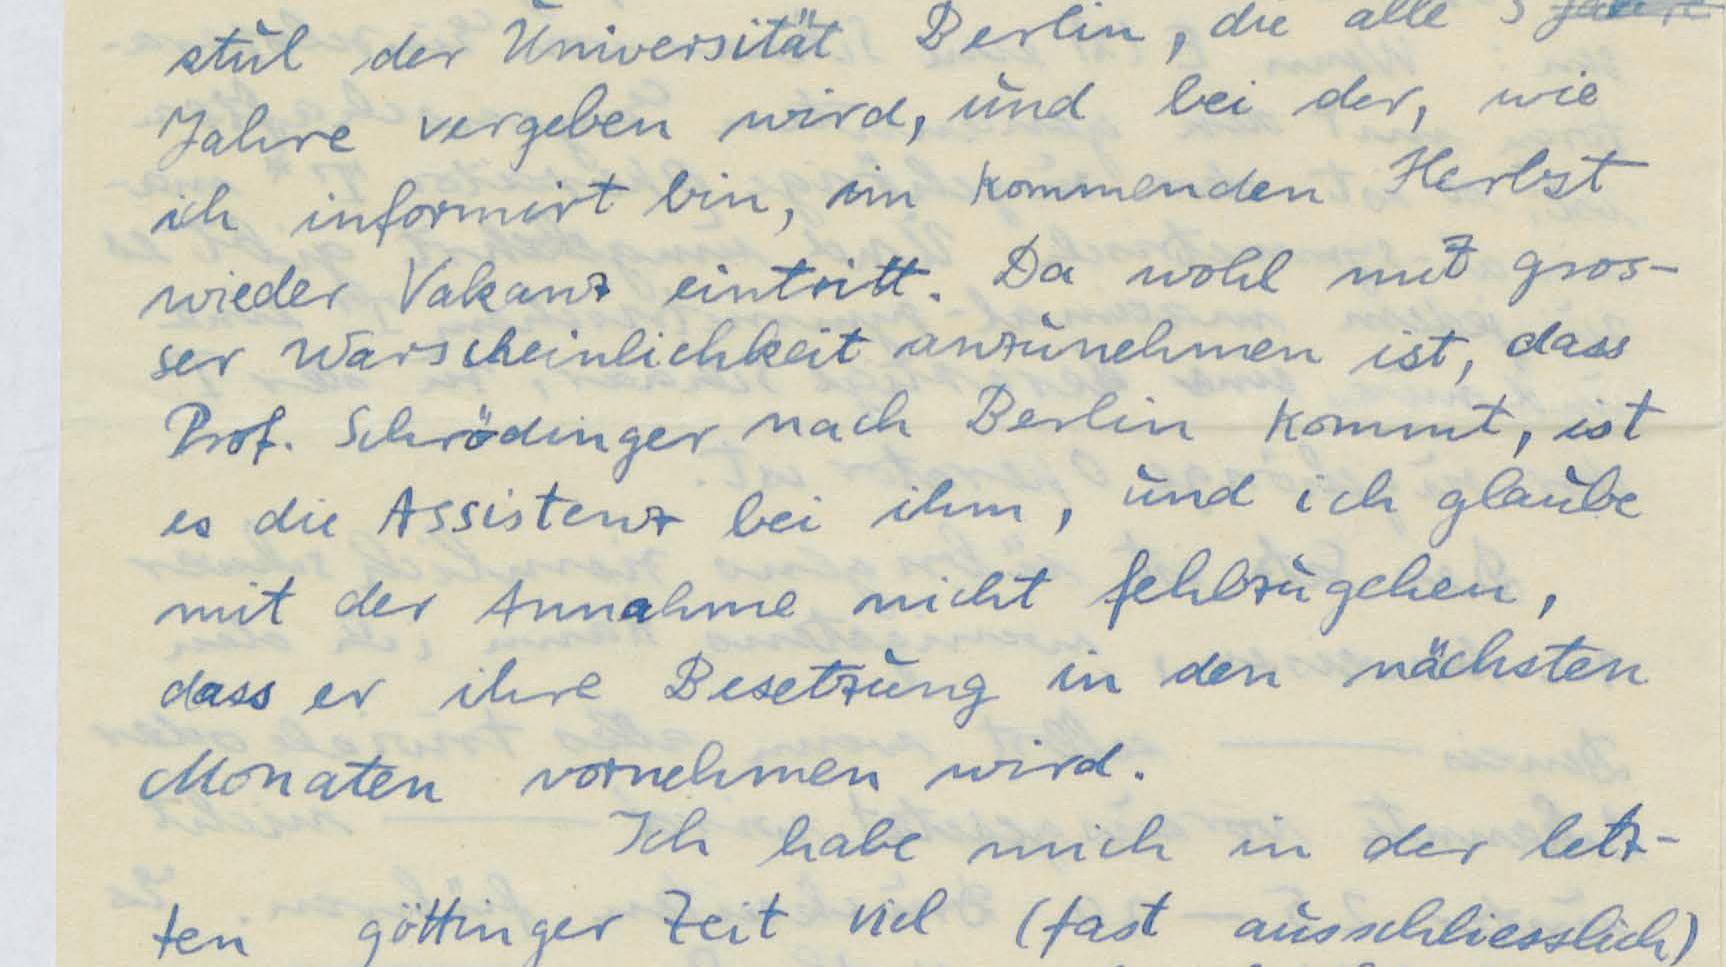 stul der Universität Berlin, die alle 3 Jahre
Jahre vergeben wird, und bei der, wie
ich informirt bin, im kommenden Herbst
wieder Vakanz eintritt. Da wohl mit gros-
ser Warscheinlichkeit anzunehmen ist, dass
Prof. Schrödinger nach Berlin kommt, ist
es die Assistenz bei ihm, und ich glaube
mit der Annahme nicht fehlzugehen,
dass er ihre Besetzung in den nächsten
Monaten vornehmen wird.
Ich habe mich in der letz-
ten göttinger Zeit viel (fast ausschliesslich)